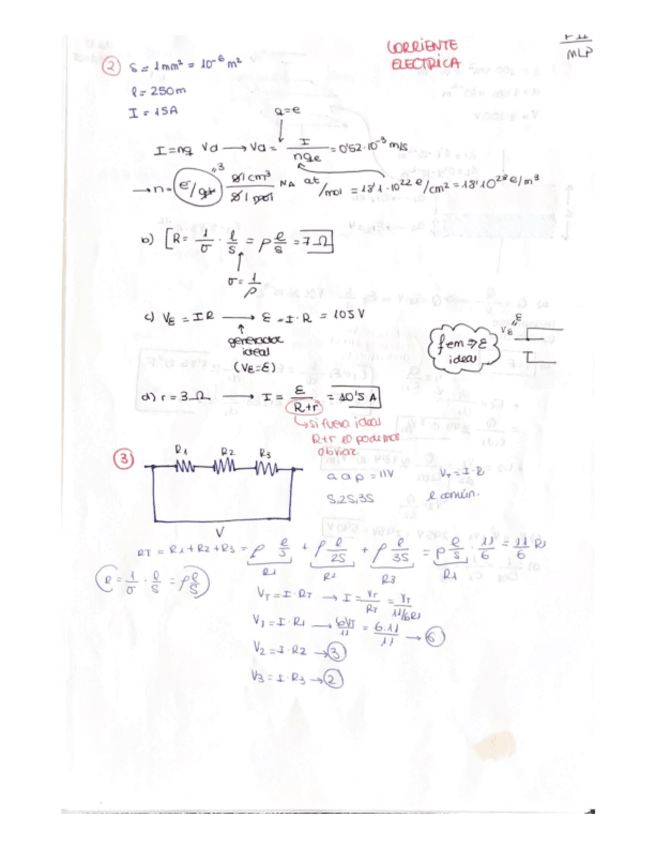 CORRIENTE
ELECTRICA
MLP
② S = 1mm² = 10⁻⁶ m²
l = 250m
I = 15A
q=e
I = nq Vd → Vd = I/nqe = 0'52·10⁻³ m/s
→ n = 8'1 cm³ NA at/mol = 18'1·10²² e/cm² = 18'10²⁸ e/m³
b) [R = 1/σ · l/S = ρ l/S = 7Ω
σ = 1/ρ
c) VE = IR → ε = I·R = 105V
generador
ideal
(VE=ε)
fem ⇒ ε
ideal
VE = ε
d) r = 3Ω → I = ε/(R+r) = 10'5 A
si fuera ideal
R+r lo podemos
obviar
③ R1 R2 R3
V
d d p = 11V
VT = I·R
S, 2S, 3S
l común.
RT = R1 + R2 + R3 = ρ l/S + ρ l/2S + ρ l/3S = ρ l/S · 11/6 = 11/6 R1
R1 R2 R3 R1
(R = 1/σ · l/S = ρ l/S)
VT = I·RT → I = VT/RT = VT/11/6R1
V1 = I·R1 → 6VT/11 = 6·11/11 → ⑥
V2 = I·R2 → ③
V3 = I·R3 → ②